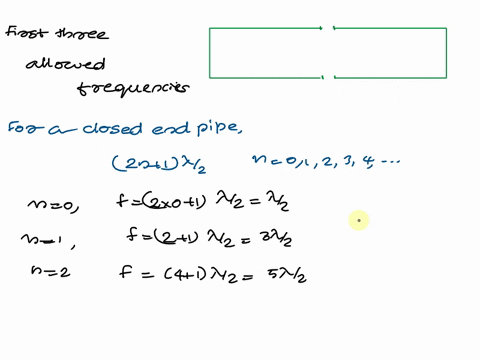 First three
allowed
frequencies
For a closed end pipe,
(2n+1) λ/2 n=0,1,2,3,4,...
n=0, f=(2x0+1) λ/2 = λ/2
n=1, f=(2+1) λ/2 = 3λ/2
n=2 f = (4+1) λ/2 = 5λ/2